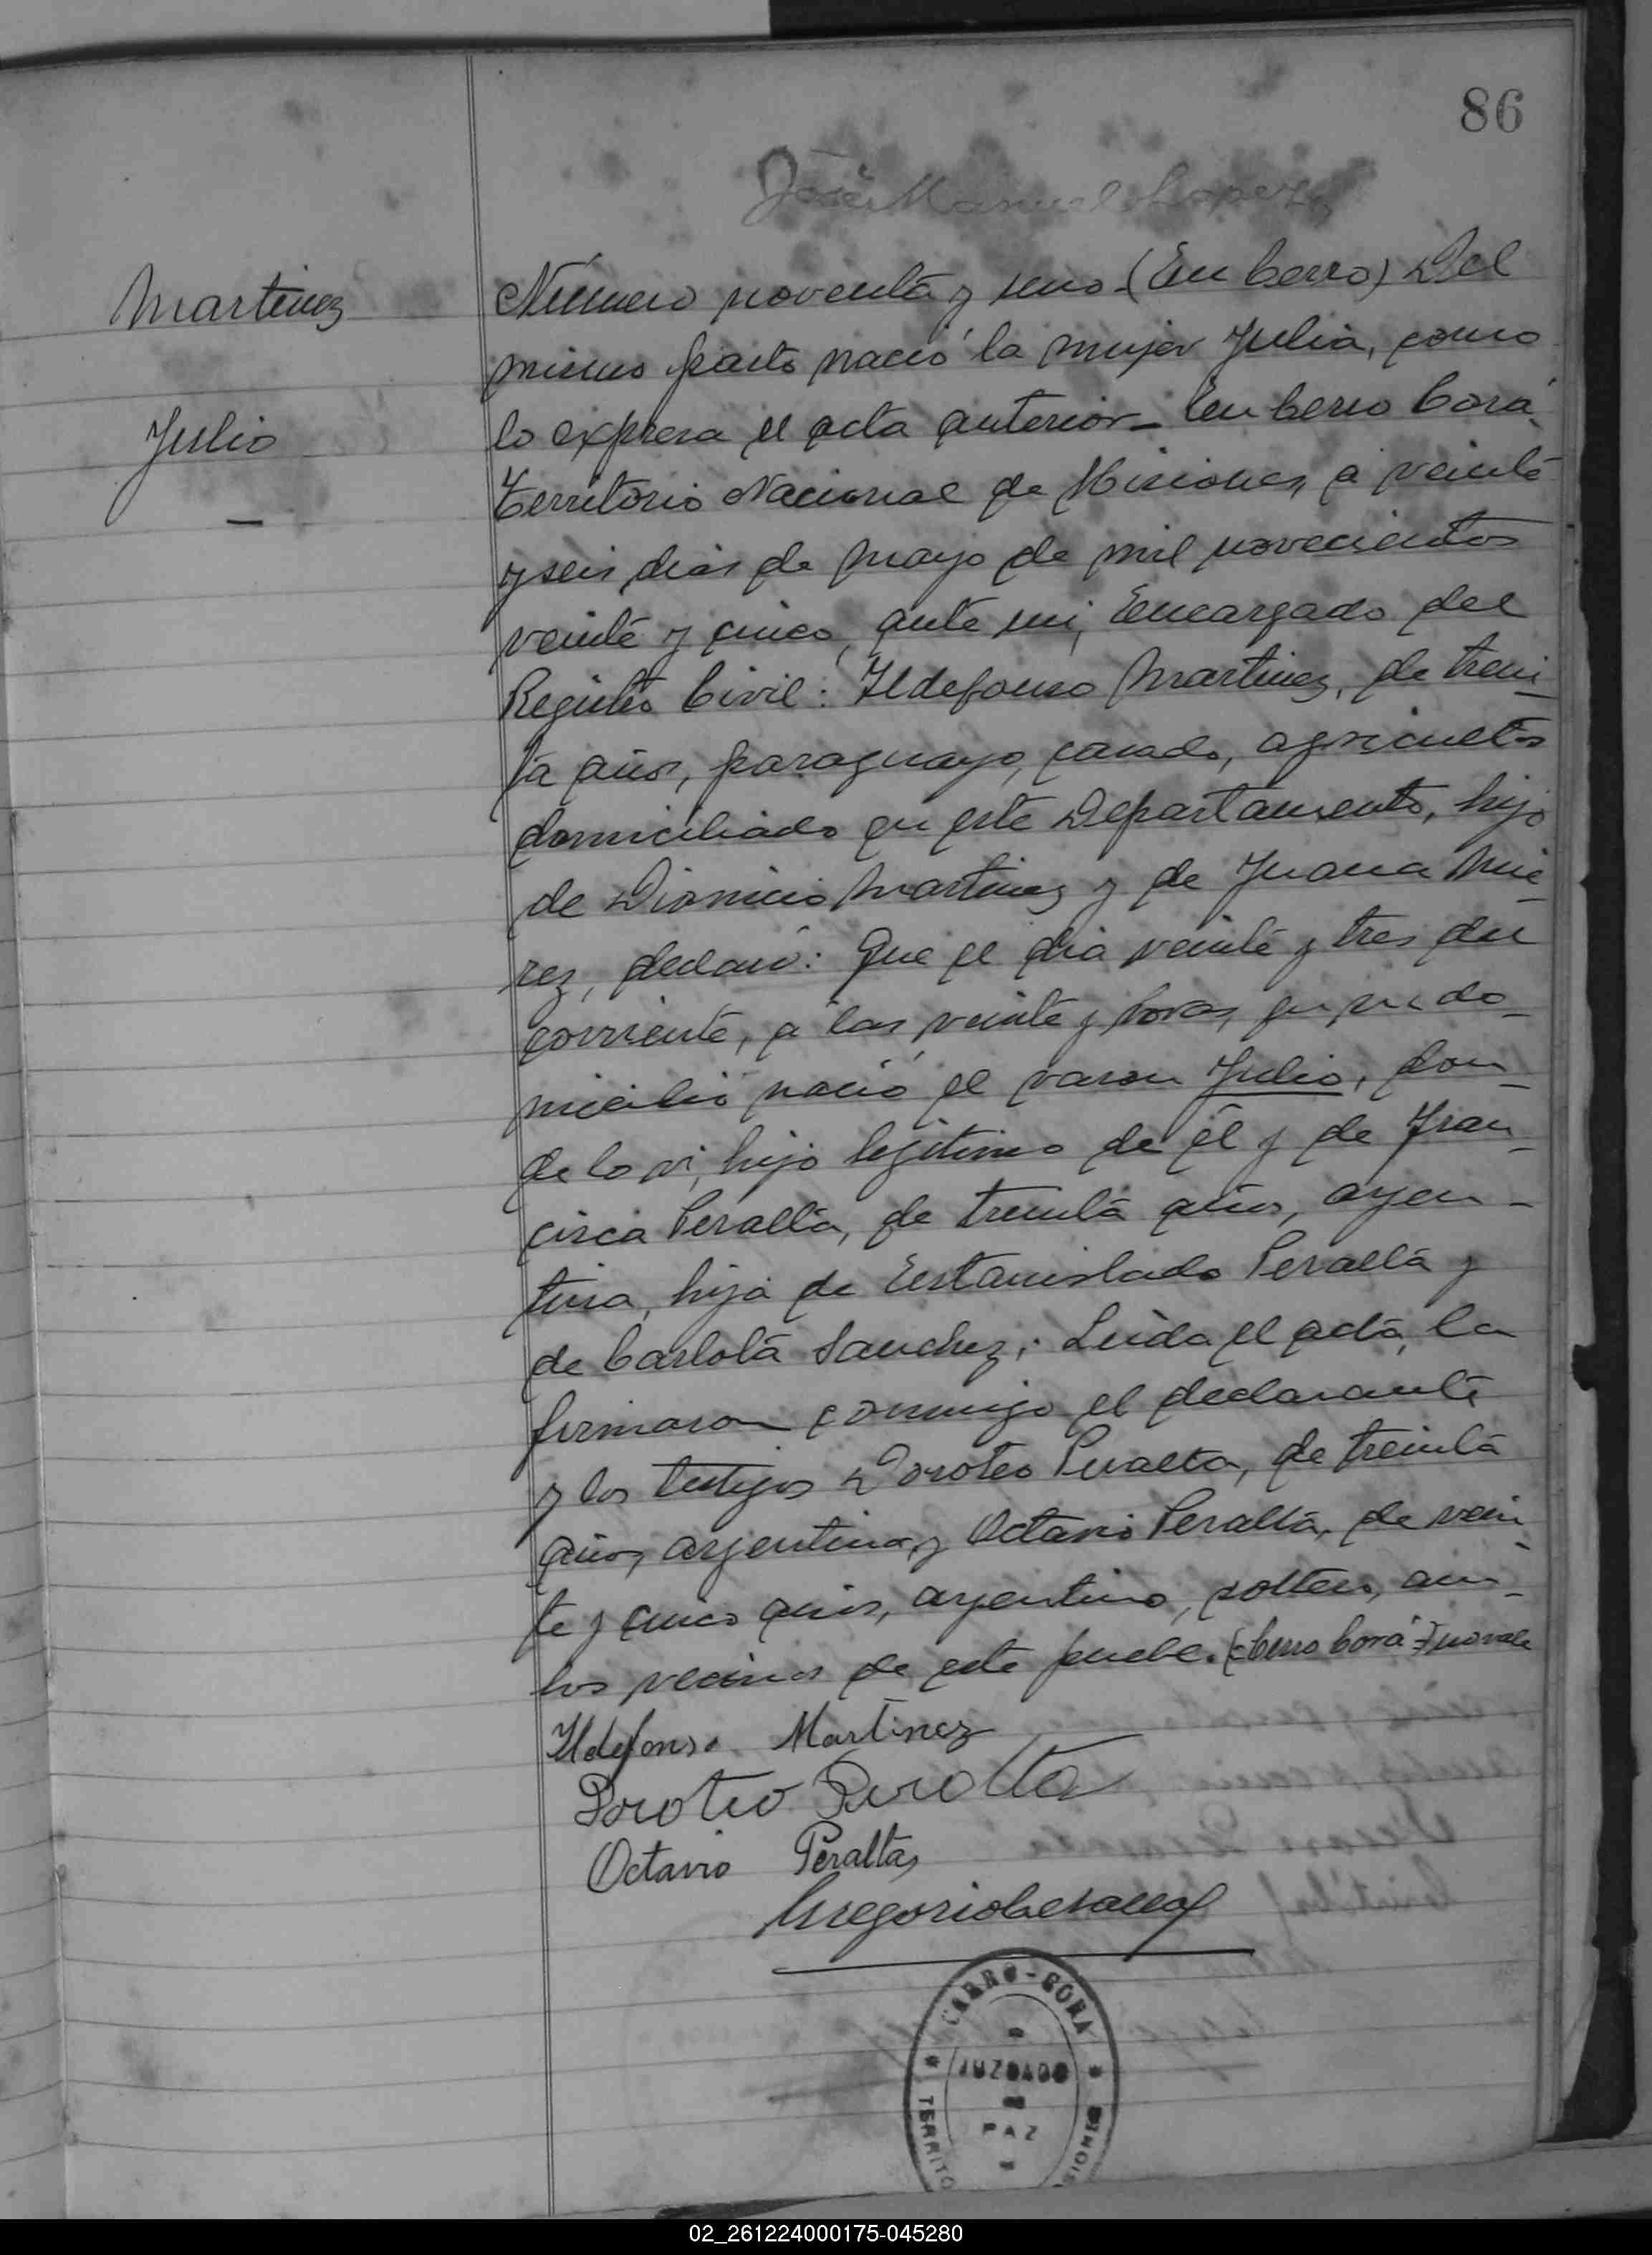 86
José Manuel Lopez
Martinez
Julio
Número noventa y uno - (En Cerro) Del
mismo parto nació la mujer Julia, como
lo expresa el acta anterior - En Cerro Corá,
Territorio Nacional de Misiones, a veinte
y seis dias de Mayo de mil novecientos
veinte y cinco, ante mi, Encargado del
Registro Civil: Ildefonso Martinez, de trein-
ta años, paraguayo, casado, agricultor
domiciliado en este Departamento, hijo
de Dionicio Martinez y de Juana
rez, declaró: Que el dia veinte y tres del
corriente, a las veinte y horas, en su do-
micilio nació el varon Julio, don-
de lo vi, hijo legitimo de él y de Fran-
cisca Peralta, de treinta años, argen-
tina, hija de Estanislado Peralta y
de Carlota Sanchez; Leida el acta, la
firmaron conmigo el declarante
y los testigos Doroteo Peralta, de treinta
años, argentino, y Octavio Peralta, de vein-
te y cinco años, argentino, soltero, am-
bos vecinos de este pueblo. (-Cerro Corá-) no vale
Ildefonso Martinez
Doroteo Peralta
Octavio Peralta
CERRO-CORA
JUZGADO
PAZ
TERRITO
02_261224000175-045280